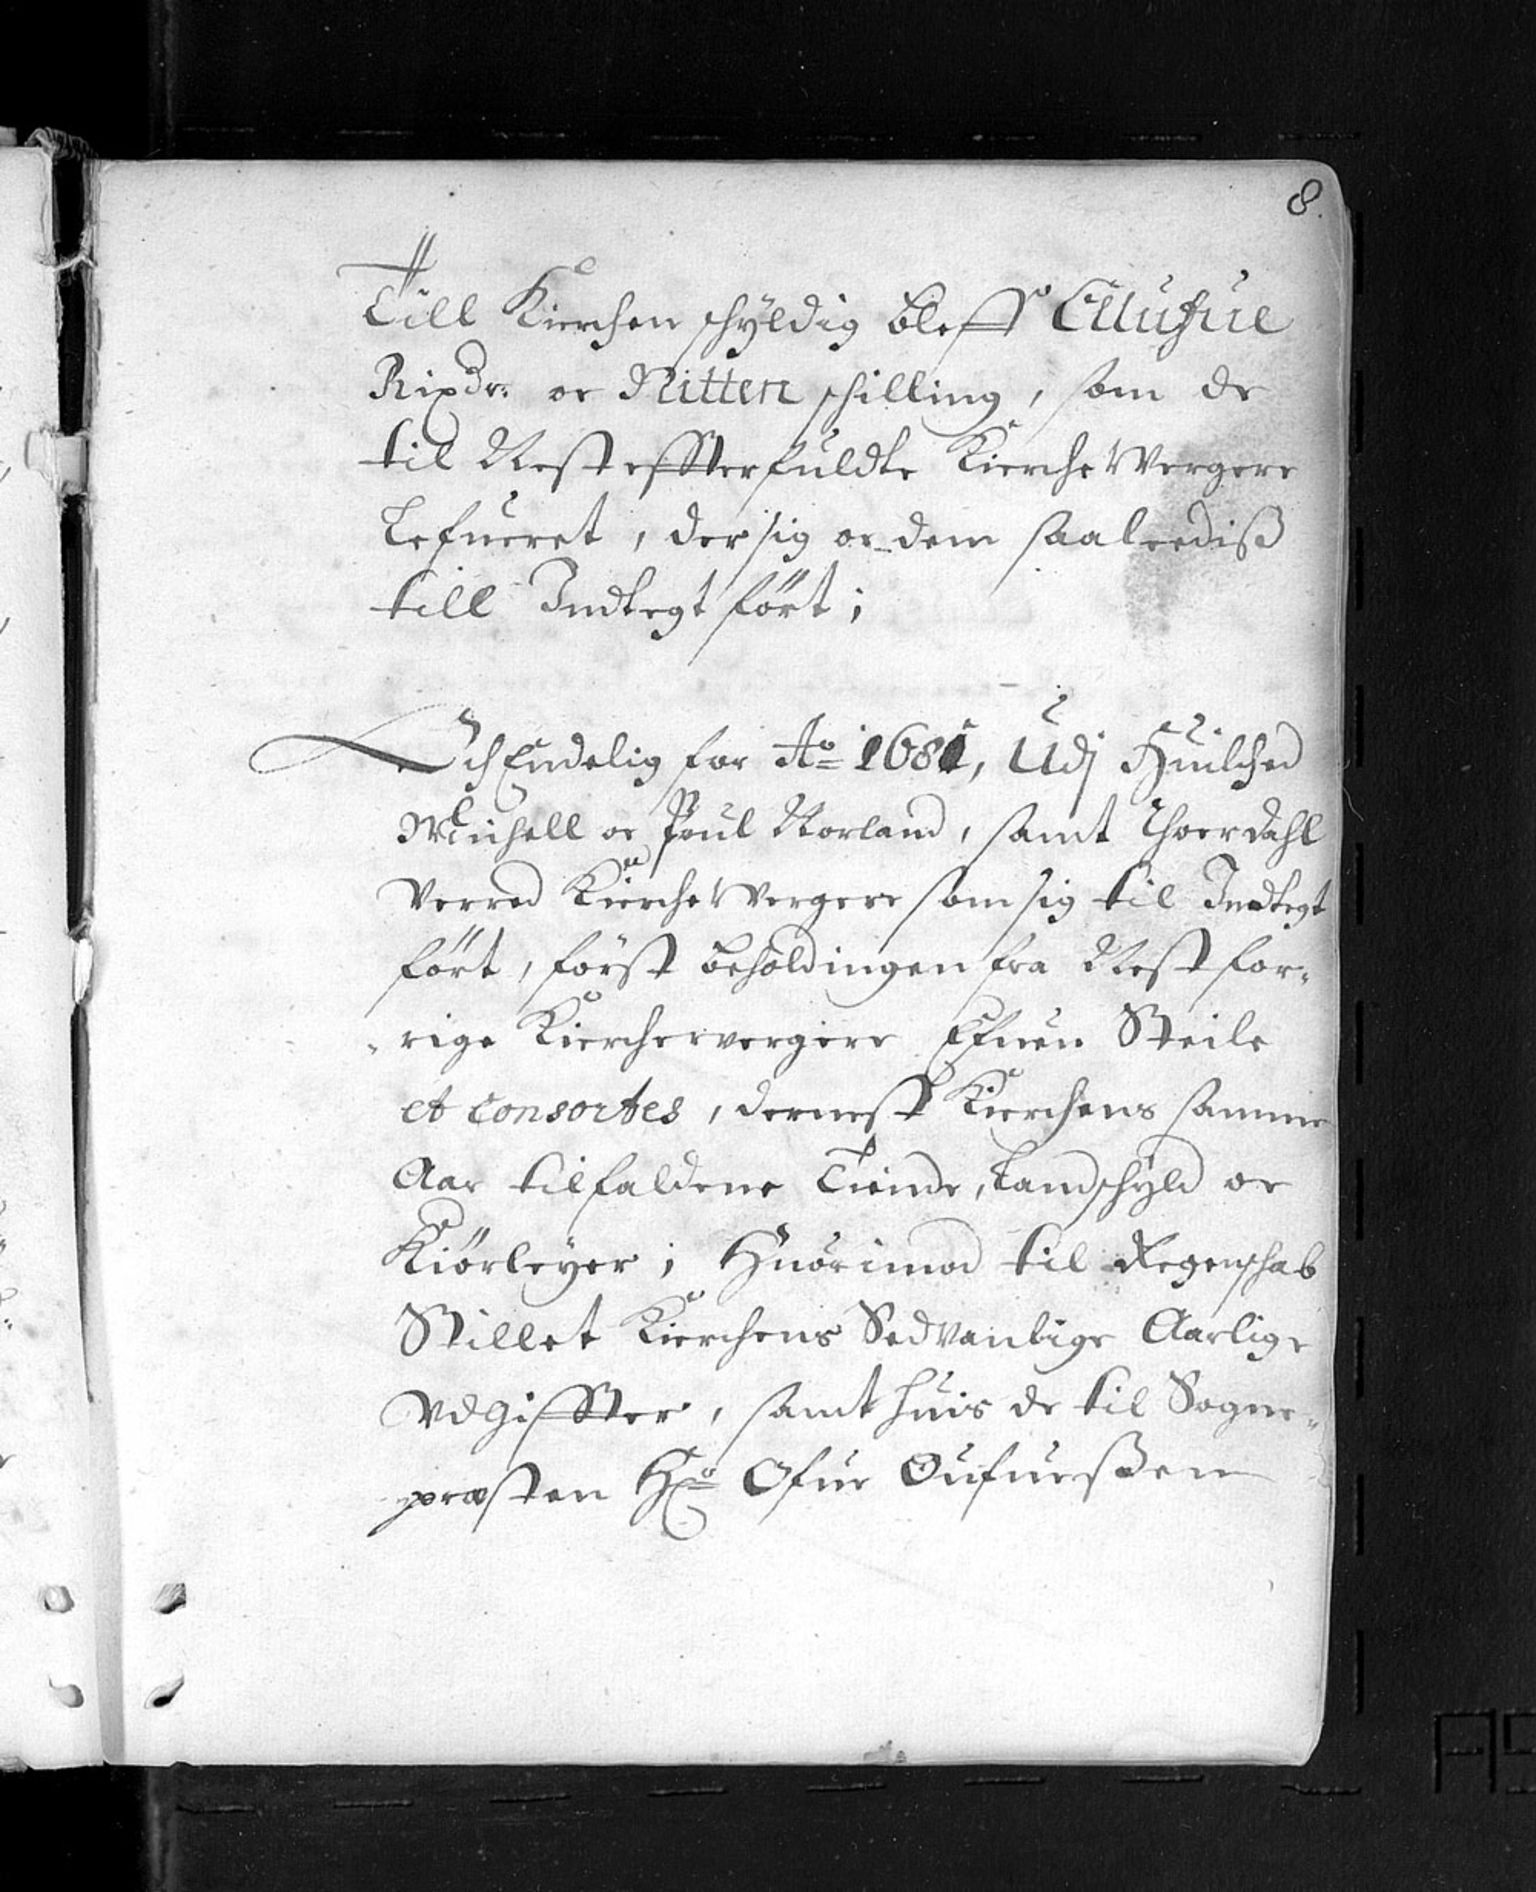 8.
Till Kierchen schyldig bleff Ellufue
Rixdr: oc Nitten schilling, som de
til Nest effterfuldte Kierche Wergere
Lefueret, der sig oc dem saaleediß
till Indtegt ført;
Och Endelig for Ao 1681, Udj Huilched
Michell oc Poul Norland, samt Thoer dahl
Verred Kierche Wergere som sig til Indtegt
ført, først beholdingen fra Nest for-
-rige Kierchewergere Efuen Steile
et consortes, dernest Kierchens samme
Aar tilfaldene Tiende, Landschyld oc
Kiørleyer; Huorimod til Regenschab
Stillet Kierchens Sedvanlige Aarlige
Vdgiffter, samt huis de til Sogne-
præsten Hr Ofue Oufuerßen